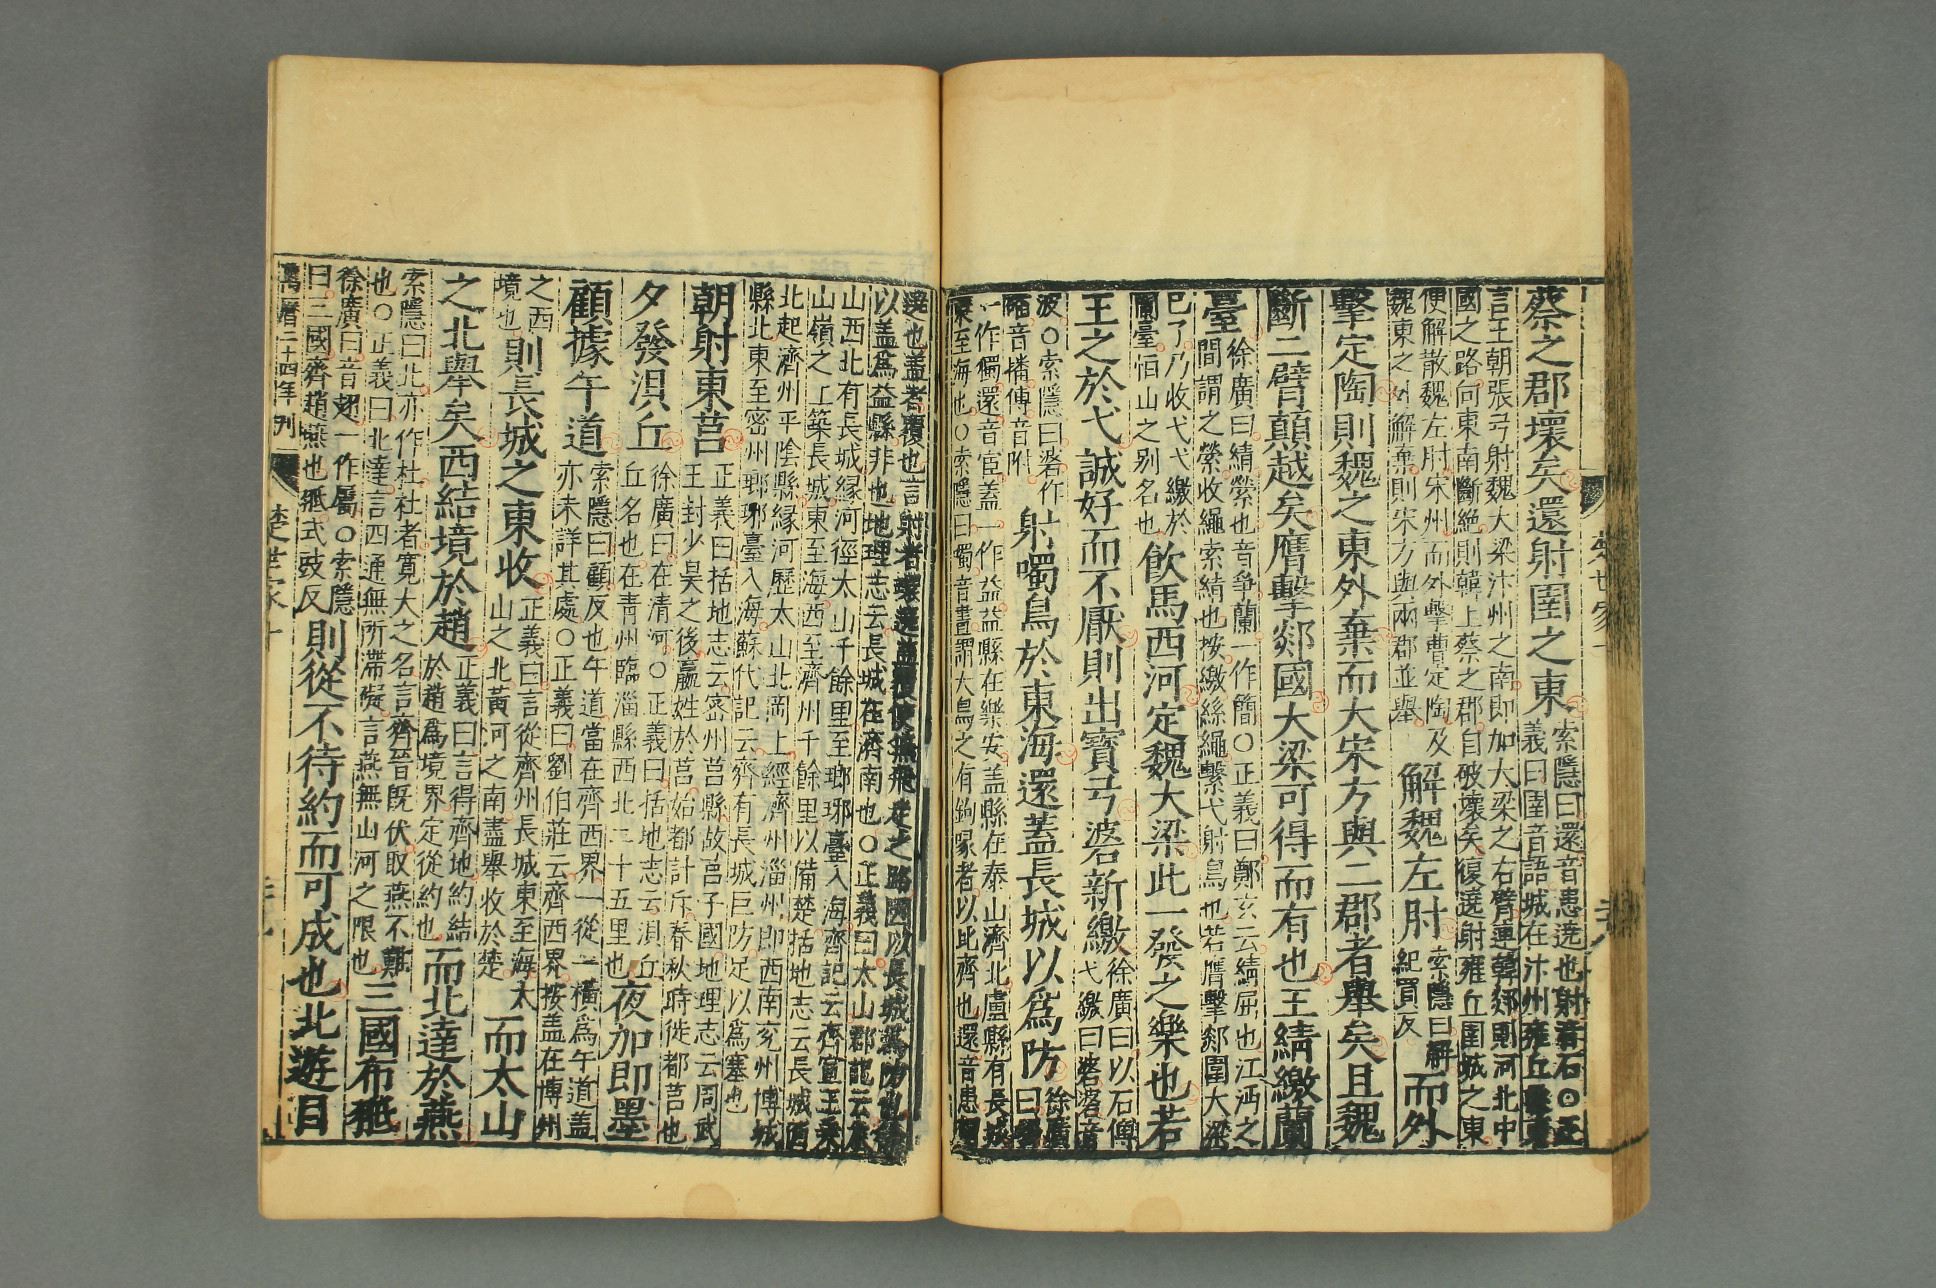 蔡之郡壞矣還射圉之東索隱曰還音患遶也射音石○正義曰圉音語城在汴州雍丘縣東
言王朝張弓射魏大梁汴州之南即加大梁之右臂連韓郯則河北中國之路向東南斷絕則韓上蔡之郡自破壞矣復遶射雍丘圉城之東
便解散魏左肘宋州而外擊曹定陶及魏東之外解棄則宋方與兩郡並舉解魏左肘索隱曰解紀買反而外
擊定陶則魏之東外棄而大宋方與二郡者舉矣且魏
斷二臂顛越矣膺擊郯國大梁可得而有也王綪繳蘭
臺徐廣曰綪縈也音爭蘭一作簡○正義曰鄭玄云綪屈也江沔之間謂之縈收繩索綪也按繳絲繩繫弋射鳥也若膺擊郯圍大梁
已了乃收弋繳於蘭臺桓山之別名也飲馬西河定魏大梁此一發之樂也若
王之於弋誠好而不厭則出寶弓碆新繳徐廣曰以石傅弋繳曰碆碆音
波○索隱曰碆作磻音播傅音附射噣鳥於東海還蓋長城以爲防徐廣曰噣
一作獨還音宦蓋一作益益縣在樂安蓋縣在泰山濟北盧縣有長城東至海也○索隱曰噣音晝謂大鳥之有鉤喙者以比齊也還音患謂
遶也蓋者覆也言射者環遶蓋覆使無飛走之路因以長城爲防也徐以蓋爲益縣非也地理志云長城在濟南也○正義曰太山郡記云太
山西北有長城緣河徑太山千餘里至瑯琊臺入海齊記云齊宣王乘山嶺之上築長城東至海西至濟州千餘里以備楚括地志云長城西
北起濟州平陰縣緣河歷太山北岡上經濟州淄川即西南兗州博城縣北東至密州瑯琊臺入海蘇代記云齊有長城巨防足以爲塞也
朝射東莒正義曰括地志云密州莒縣故莒子國地理志云周武王封少昊之後嬴姓於莒始都計斤春秋時徙都莒也
夕發浿丘徐廣曰在清河○正義曰括地志云浿丘丘名也在青州臨淄縣西北二十五里也夜加即墨
顧據午道索隱曰顧反也午道當在齊西界一從一橫爲午道蓋亦未詳其處○正義曰劉伯莊云齊西界按蓋在博州
之西境也則長城之東收正義曰言從齊州長城東至海太山之北黃河之南盡舉收於楚而太山
之北舉矣西結境於趙正義曰言得齊地約結於趙爲境界定從約也而北達於燕
索隱曰北亦作杜杜者寬大之名言齊晉既伏取燕不難也○正義曰北達言四通無所滯礙言燕無山河之限也三國布𦐂
徐廣曰音翅一作屬○索隱曰三國齊趙燕也𦐂式豉反則從不待約而可成也北遊目
萬曆二十四年刊 楚世家十